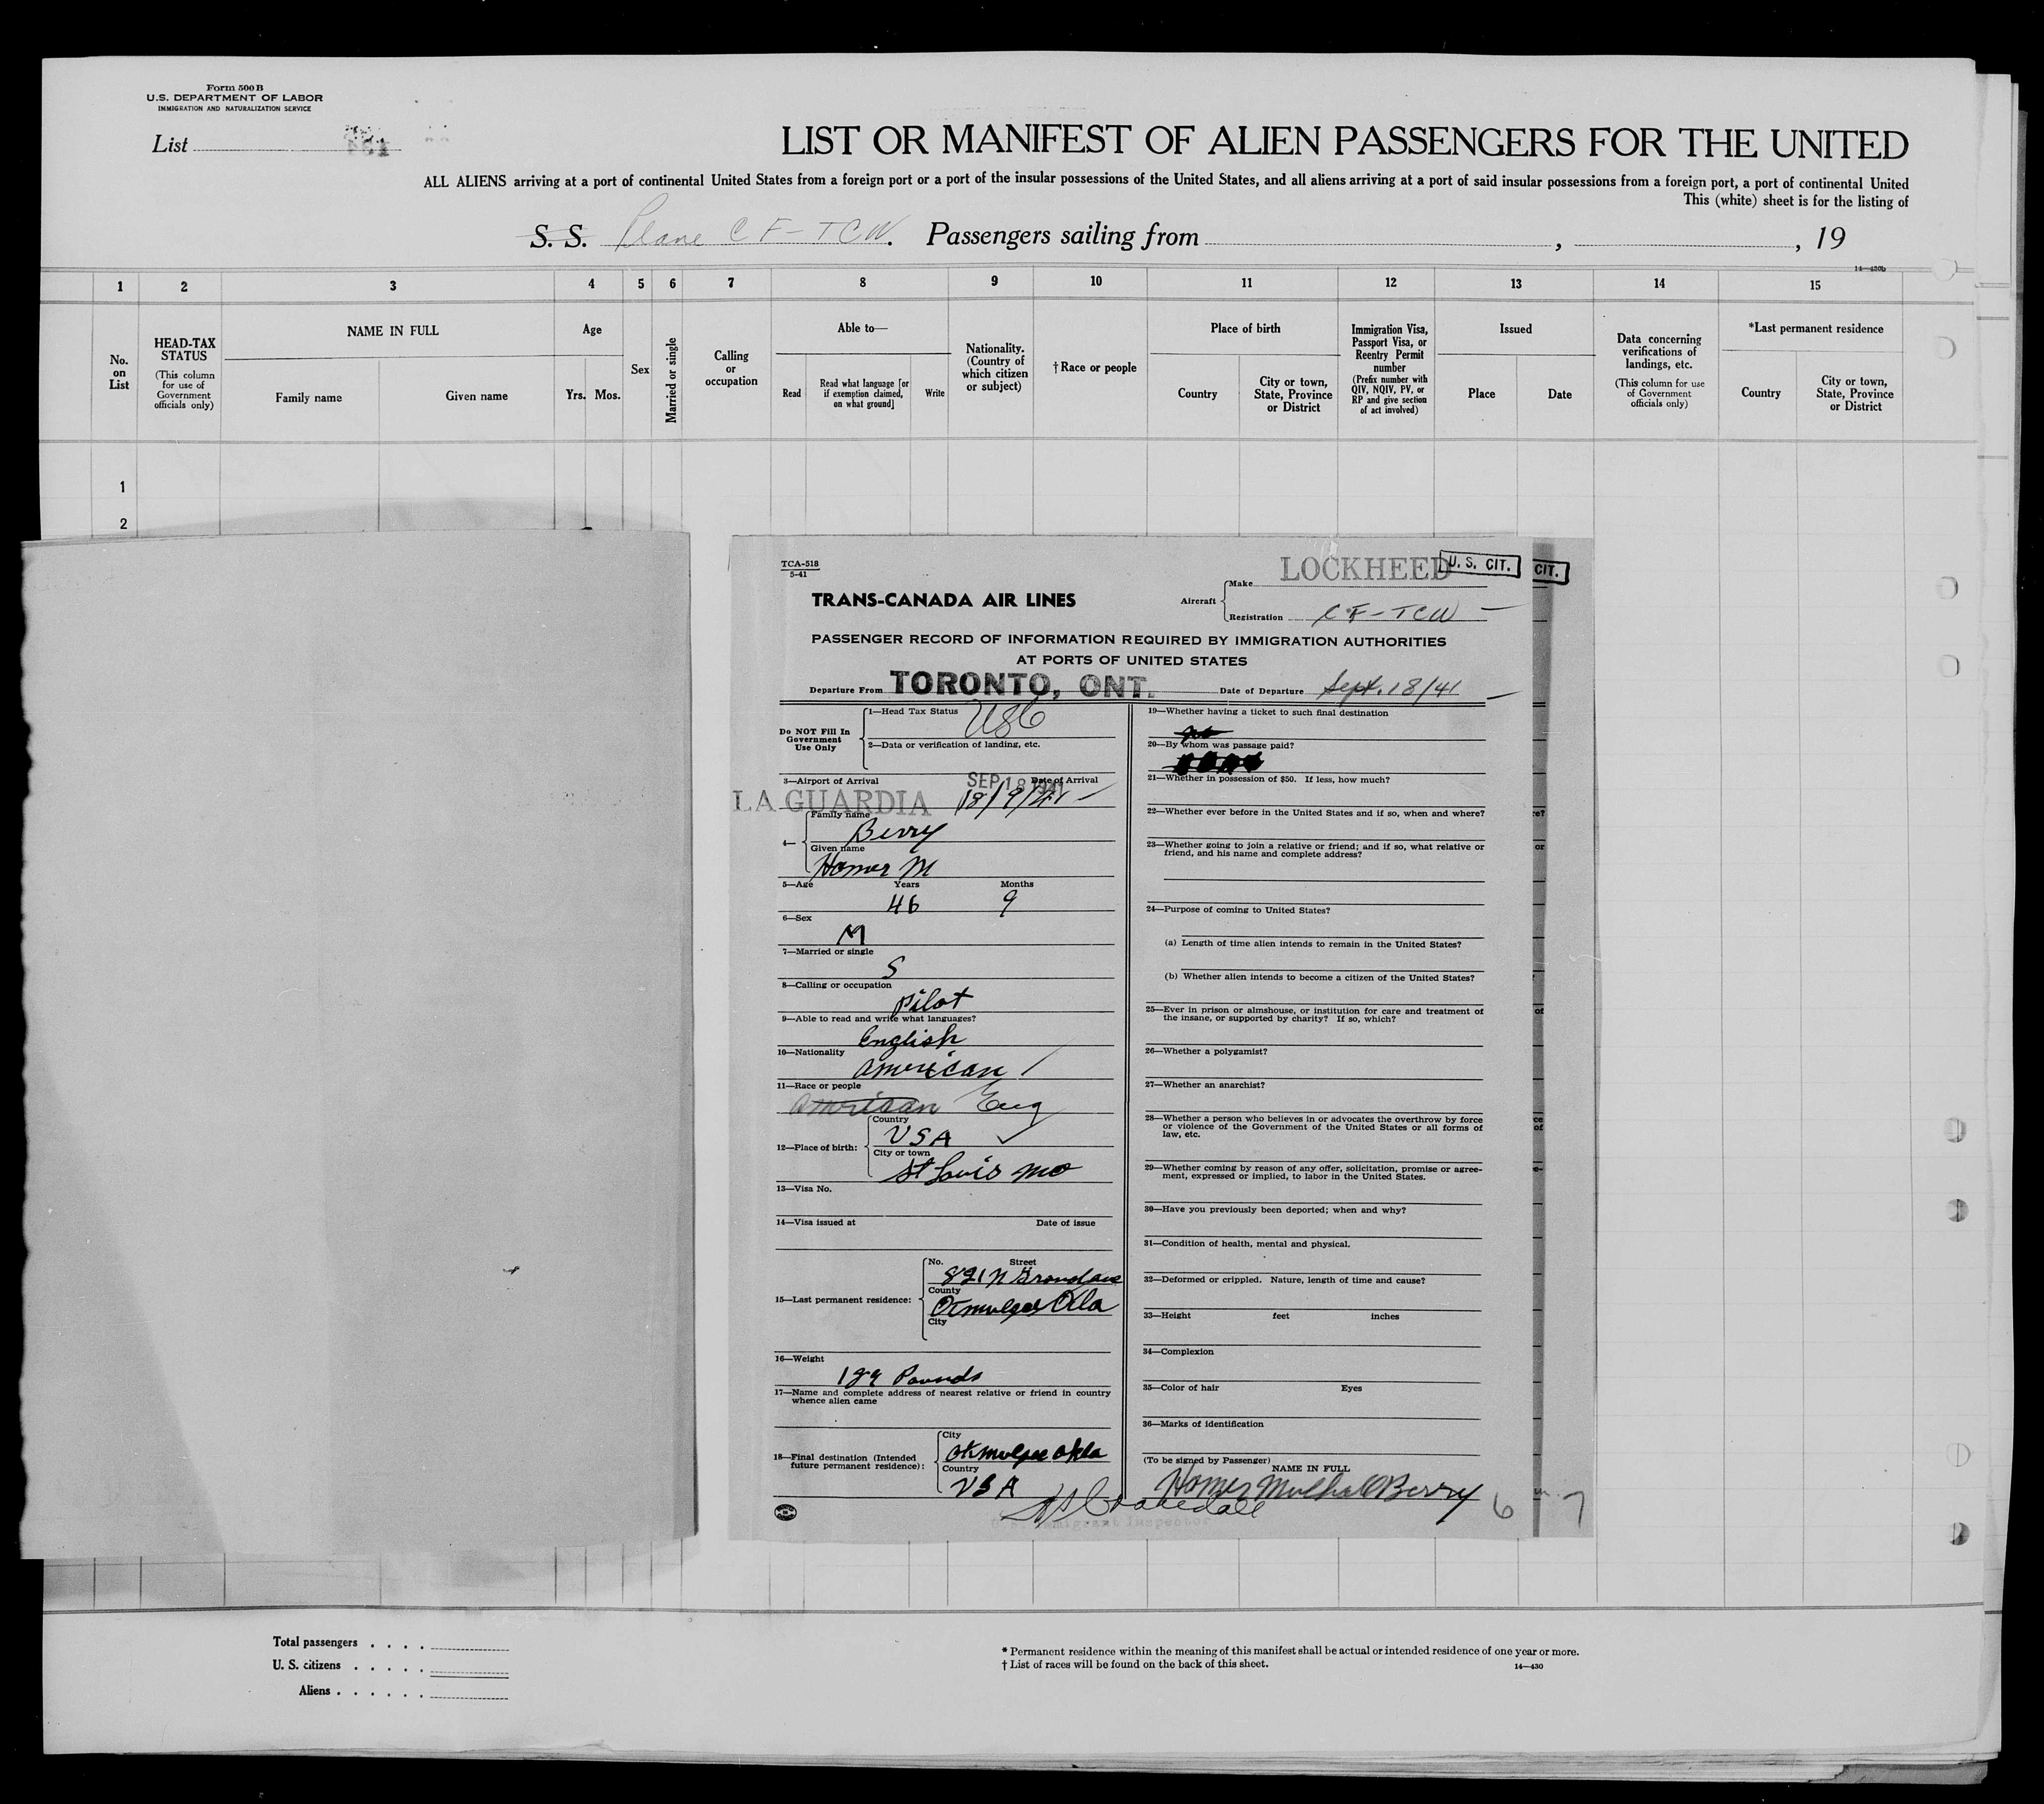 Form 500 B
U.S. DEPARTMENT OF LABOR
IMMIGRATION AND NATURALIZATION SERVICE
List
LIST OR MANIFEST OF ALIEN PASSENGERS FOR THE UNITED
ALL ALIENS arriving at a port of continental United States from a foreign port or a port of the insular possessions of the United States, and all aliens arriving at a port of said insular possessions from a foreign port, a port of continental United
This (white) sheet is for the listing of
S. S. Plane CF-TCW. Passengers sailing from , , 19
14—430b
1 2 3 4 5 6 7 8 9 10 11 12 13 14 15
No. on List
HEAD-TAX STATUS
(This column for use of Government officials only)
NAME IN FULL
Family name
Given name
Age
Yrs. Mos.
Sex
Married or single
Calling or occupation
Able to—
Read
Read what language [or if exemption claimed, on what ground]
Write
Nationality. (Country of which citizen or subject)
†Race or people
Place of birth
Country
City or town, State, Province or District
Immigration Visa, Passport Visa, or Reentry Permit number
(Prefix number with QIV, NQIV, PV, or RP and give section of act involved)
Issued
Place
Date
Data concerning verifications of landings, etc.
(This column for use of Government officials only)
*Last permanent residence
Country
City or town, State, Province or District
1
2
TCA-518
5-41
TRANS-CANADA AIR LINES
Aircraft
Make LOCKHEED
U. S. CIT.
CIT.
Registration CF-TCW
PASSENGER RECORD OF INFORMATION REQUIRED BY IMMIGRATION AUTHORITIES
AT PORTS OF UNITED STATES
Departure From TORONTO, ONT. Date of Departure Sept. 18/41
Do NOT Fill In Government Use Only
1—Head Tax Status USC
2—Data or verification of landing, etc.
3—Airport of Arrival Date of Arrival
SEP 18 1941
LA GUARDIA 18/9/41
4—
Family name
Berry
Given name
Homer M
5—Age Years Months
46 9
6—Sex
M
7—Married or single
S
8—Calling or occupation
Pilot
9—Able to read and write what languages?
English
10—Nationality
American
11—Race or people
American Eng
12—Place of birth:
Country
USA
City or town
St Louis Mo
13—Visa No.
14—Visa issued at Date of issue
15—Last permanent residence:
No. Street
821 N Grand ave
County
Okmulgee Okla
City
16—Weight
Pounds
17—Name and complete address of nearest relative or friend in country
whence alien came
18—Final destination (Intended
future permanent residence):
City
Okmulgee Okla
Country
USA
19—Whether having a ticket to such final destination
20—By whom was passage paid?
21—Whether in possession of $50. If less, how much?
22—Whether ever before in the United States and if so, when and where?
23—Whether going to join a relative or friend; and if so, what relative or
friend, and his name and complete address?
24—Purpose of coming to United States?
(a) Length of time alien intends to remain in the United States?
(b) Whether alien intends to become a citizen of the United States?
25—Ever in prison or almshouse, or institution for care and treatment of
the insane, or supported by charity? If so, which?
26—Whether a polygamist?
27—Whether an anarchist?
28—Whether a person who believes in or advocates the overthrow by force
or violence of the Government of the United States or all forms of
law, etc.
29—Whether coming by reason of any offer, solicitation, promise or agree-
ment, expressed or implied, to labor in the United States.
30—Have you previously been deported; when and why?
31—Condition of health, mental and physical.
32—Deformed or crippled. Nature, length of time and cause?
33—Height feet inches
34—Complexion
35—Color of hair Eyes
36—Marks of identification
(To be signed by Passenger) NAME IN FULL
Homer Mulhall Berry 6 7
Immigrant Inspector
Total passengers
U. S. citizens
Aliens
* Permanent residence within the meaning of this manifest shall be actual or intended residence of one year or more.
† List of races will be found on the back of this sheet.
14—430